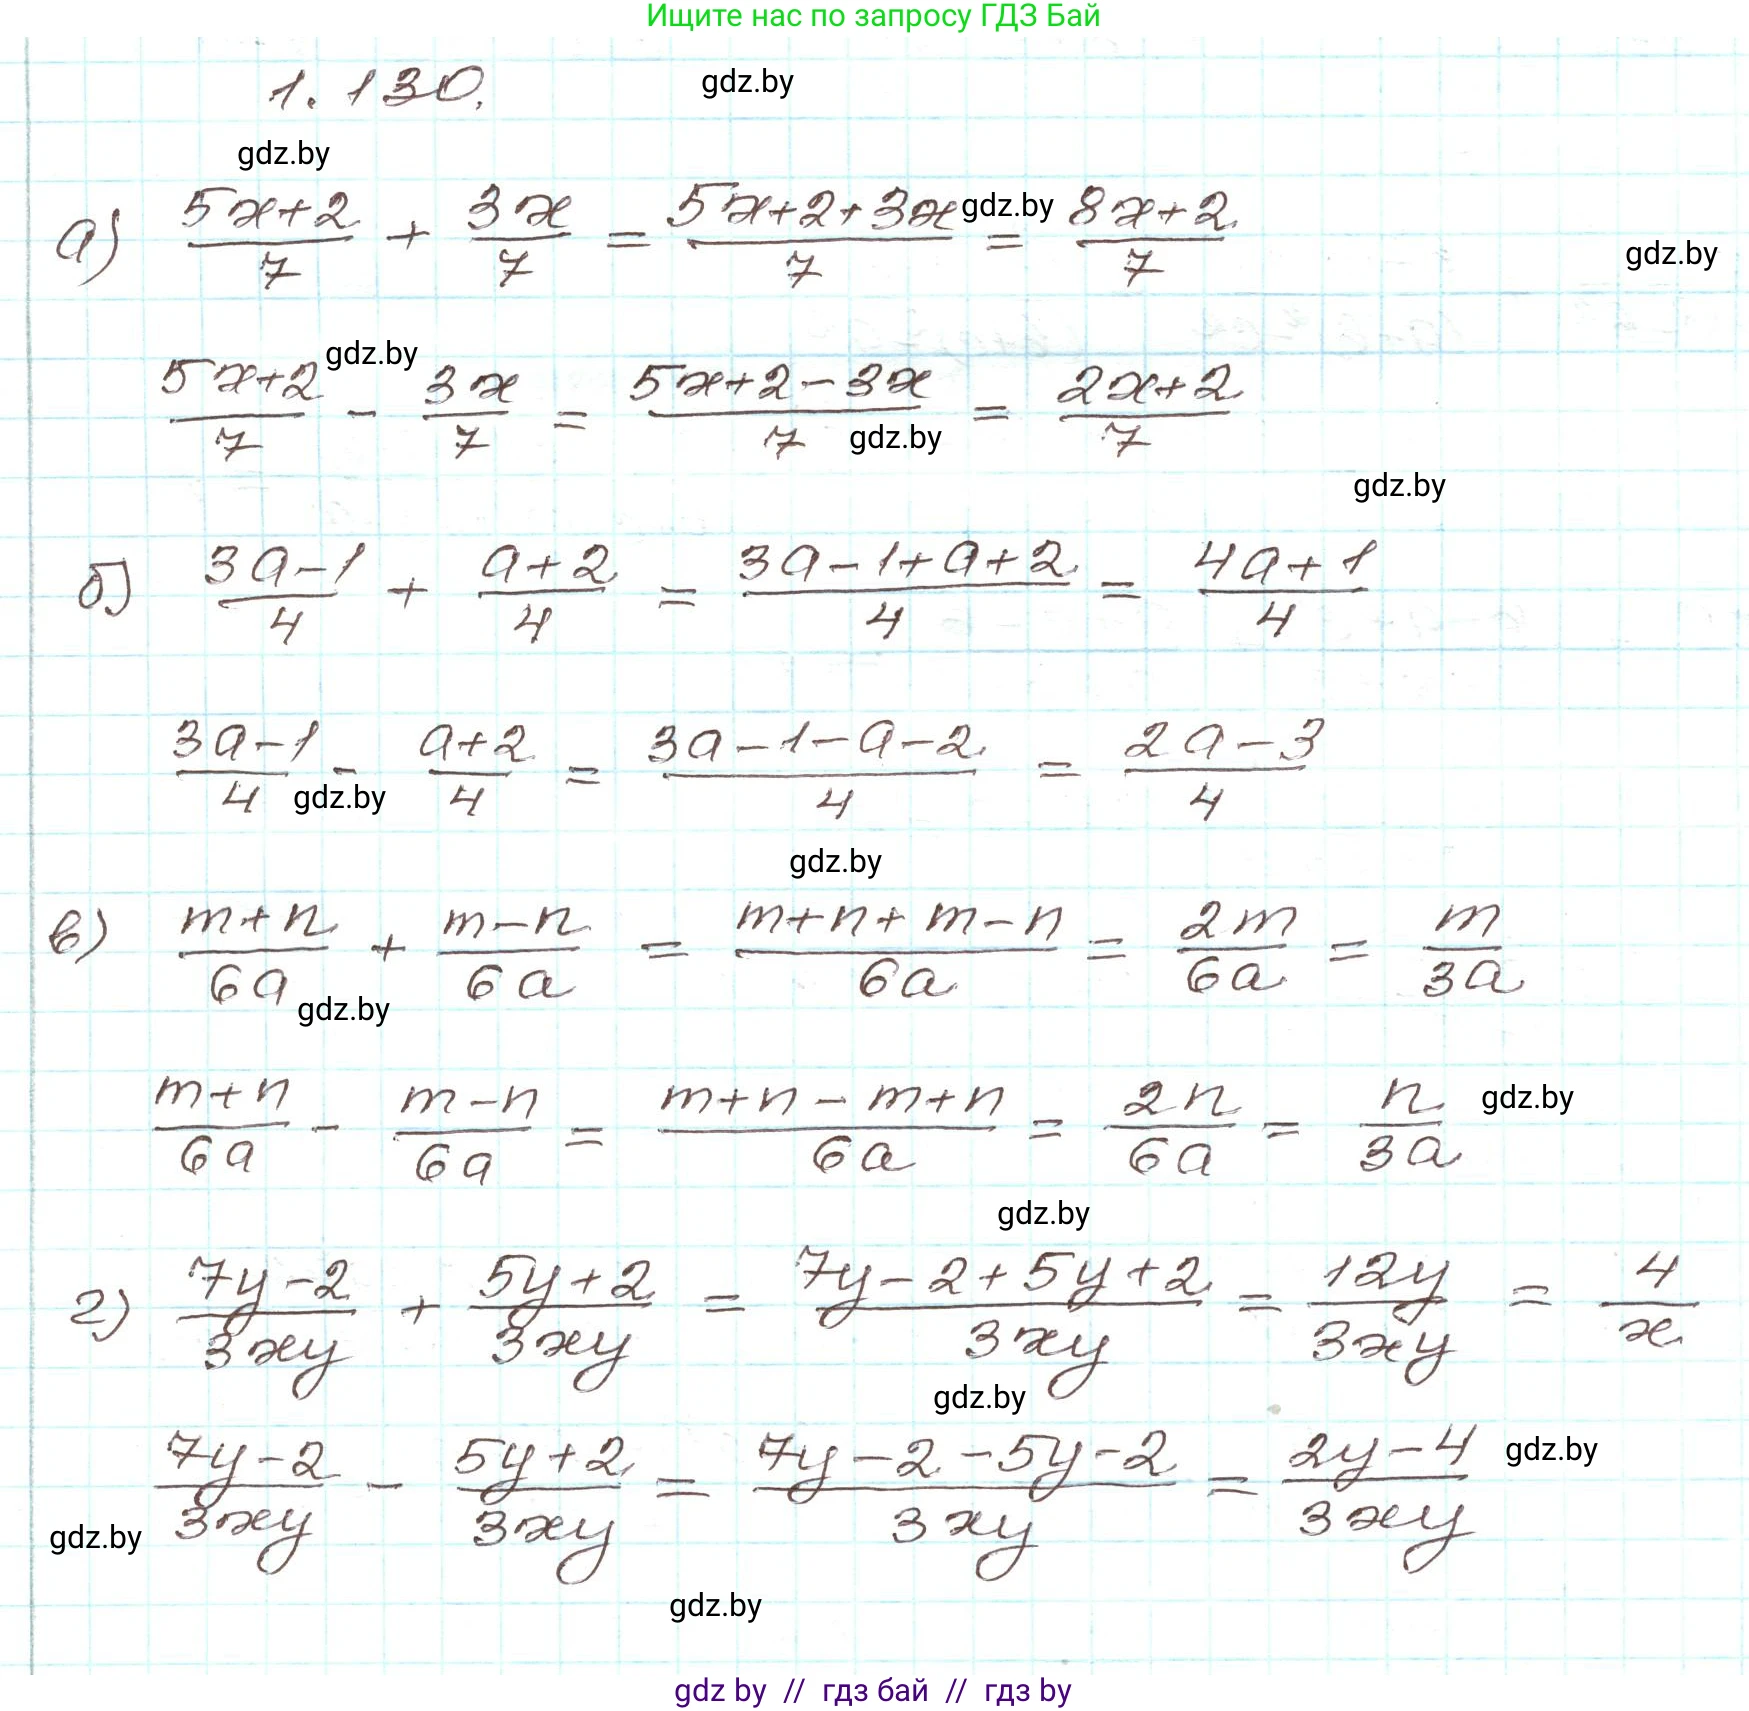 Ищите нас по запросу ГДЗ Бай
1.130.
gdz.by
gdz.by
а) (5x+2)/7 + 3x/7 = (5x+2+3x)/7 = (8x+2)/7
gdz.by
gdz.by
gdz.by
(5x+2)/7 - 3x/7 = (5x+2-3x)/7 = (2x+2)/7
gdz.by
gdz.by
б) (3a-1)/4 + (a+2)/4 = (3a-1+a+2)/4 = (4a+1)/4
(3a-1)/4 - (a+2)/4 = (3a-1-a-2)/4 = (2a-3)/4
gdz.by
gdz.by
в) (m+n)/6a + (m-n)/6a = (m+n+m-n)/6a = 2m/6a = m/3a
gdz.by
(m+n)/6a - (m-n)/6a = (m+n-m+n)/6a = 2n/6a = n/3a
gdz.by
gdz.by
г) (7y-2)/3xy + (5y+2)/3xy = (7y-2+5y+2)/3xy = 12y/3xy = 4/x
gdz.by
(7y-2)/3xy - (5y+2)/3xy = (7y-2-5y-2)/3xy = (2y-4)/3xy
gdz.by
gdz.by
gdz.by
gdz by // гдз бай // гдз by